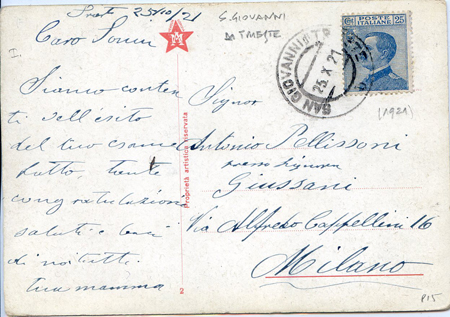 25/10/21
Caro
Siamo conten
ti dell'esito
del tuo esame
tutto, tante
congratulazioni
saluti e baci
di noi tutti.
tua mamma
S. GIOVANNI
DI TRIESTE
SAN GIOVANNI di TR
25.X.21
POSTE
ITALIANE
25
(1921)
Proprietà artistica riservata
2
Signor
Antonio Pellissoni
presso Signora
Giussani
Via Alfredo Cappellini 16
Milano
P15